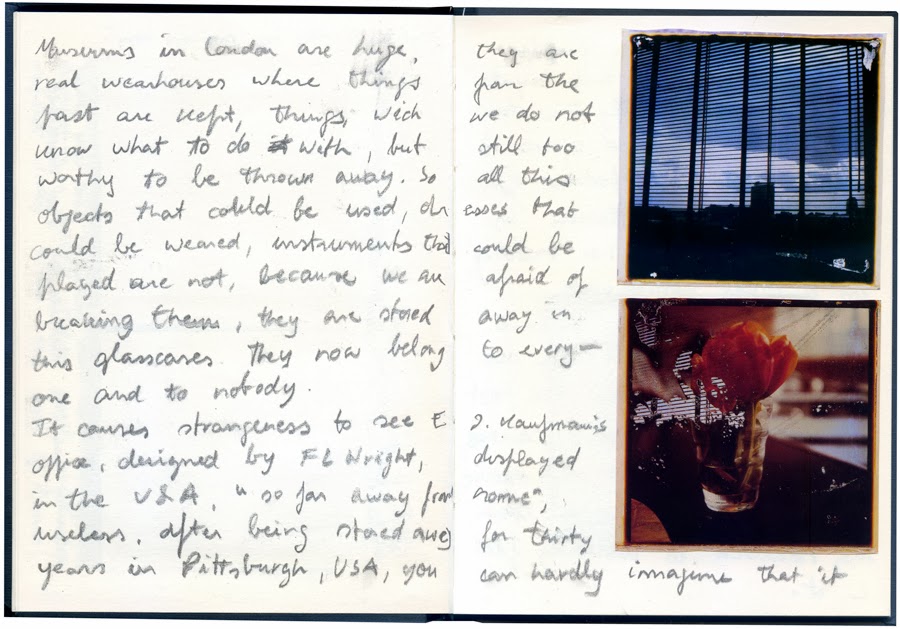 Museums in London are huge, they are
real wearhouses where things from the
past are kept, things, wich we do not
know what to do it with, but still too
worthy to be thrown away. So all this
objects that could be used, dresses that
could be weared, instruments that could be
played are not, because we are afraid of
breaking them, they are stored away in
this glasscases. They now belong to every-
one and to nobody.
It causes strangeness to see E J. Kaufmann's
office, designed by FL Wright, displayed
in the USA, "so far away from home",
useless, after being stored away for thirty
years in Pittsburgh, USA, you can hardly imagine that it